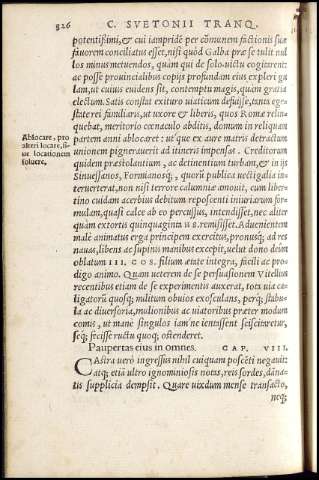 326 C. SVETONII TRANQ.
potentissimi, & cui iampridē per cōmunem factionis suæ
fauorem conciliatus esset, nisi quòd Galba præ se tulit nul
los minus metuendos, quàm qui de solo uictu cogitarent:
ac posse prouincialibus copijs profundam eius expleri gu
lam, ut cuiuis euidens sit, contemptu magis, quàm gratia
electum. Satis constat exituro uiaticum defuisse, tanta ege
state rei familiaris, ut uxore & liberis, quos Romæ relin
quebat, meritorio cœnaculo abditis, domum in reliquam
partem anni ablocaret: utq́; ex aure matris detractum
unionem pigneraueriit ad itineris impensas. Creditorum
quidem præstolantium, ac detinentium turbam, & in ijs
Sinuessanos, Formianosq́;, quorū publica uectigalia in-
teruerterat, non nisi terrore calumniæ amouit, cum liber-
tino cuidam acerbius debitum reposcenti iniuriarum for-
mulam, quasi calce ab eo percussus, intendisset, nec aliter
quàm extortis quinquaginta HS. remisisset. Aduenientem
malè animatus erga principem exercitus, pronusq́; ad res
nouas, libens ac supinis manibus excepit, uelut dono deûm
oblatum III. COS. filium ætate integra, facili ac pro-
digo animo. Quam ueterem de se persuasionem Vitellius
recentibus etiam de se experimentis auxerat, tota uia ca-
ligatorū quosq́; militum obuios exosculans, perq́; stabu-
la ac diuersoria, mulionibus ac uiatoribus præter modum
comis, ut manè singulos iam ne ientassent sciscitaretur,
seq́; fecisse ructu quoq; ostenderet.
Paupertas eius in omnes. CAP. VIII.
CAstra uerò ingressus nihil cuiquam poscēti negauit:
atq́; etiā ultro ignominiosis notas, reis sordes, dāna-
tis supplicia dempsit. Quare uixdum mense transacto,
neq;
Ablocare, pro
alteri locare, si-
ue locationem
soluere,